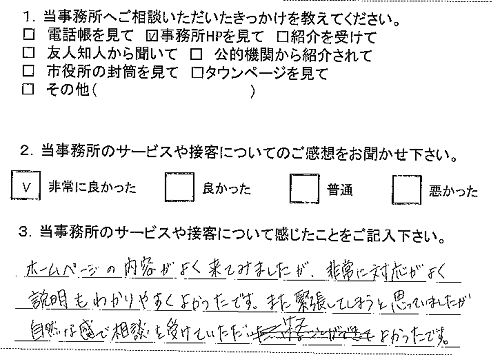 1. 当事務所へご相談いただいたきっかけを教えてください。
□ 電話帳を見て ☑事務所HPを見て □紹介を受けて
□ 友人知人から聞いて □ 公的機関から紹介されて
□ 市役所の封筒を見て □タウンページを見て
□ その他( )
2. 当事務所のサービスや接客についてのご感想をお聞かせ下さい。
☑ 非常に良かった □ 良かった □ 普通 □ 悪かった
3. 当事務所のサービスや接客について感じたことをご記入下さい。
ホームページの内容がよく来てみましたが、非常に対応がよく
説明もわかりやすくよかったです。また緊張してしまうと思っていましたが
自然な感で相談を受けていただけてよかったです。